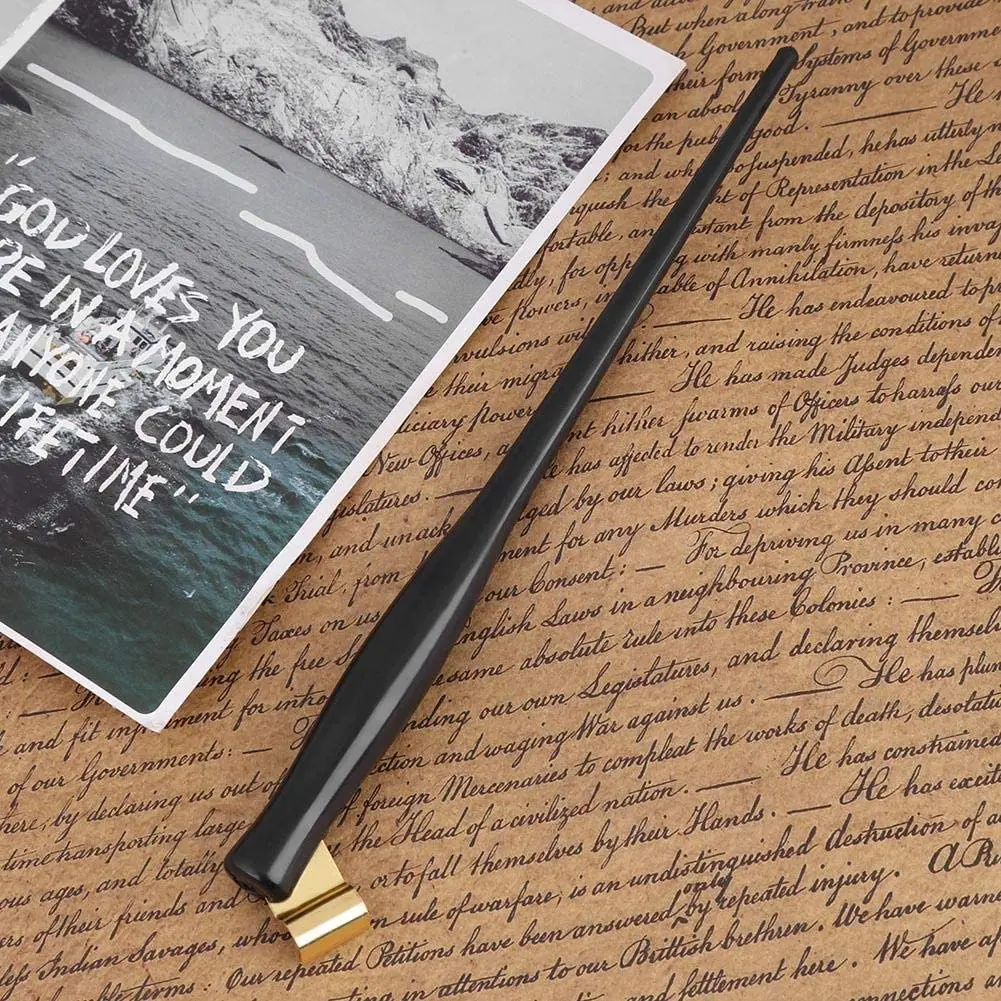 "GOD LOVES YOU
RE IN A MOMENT
ANYONE COULD
LIFE,IME"
But when a long train
Government, and to provide
their form Systems of Government
an absol Tyranny over these
the public good. He
and suspended, he has utterly n
quish the t of Representation in the
fortable, and istant from the depository of th
ly, for opp ng with manly firmneſs his inva
powers, in able of Annihilation, have return
He has endeavoured to p
vulsions with hither, and raising the conditions of
their migra He has made Judges dependen
ciary power hither swarms of Officers to harraſs our
New Offices, a has affected to render the Military independen
islatures. ged by our laws ; giving his Aſsent to their
, and unack ment for any Murders which they should co
Trial, from For depriving us in many
our Consent : in a neighbouring Province, establi
Taxes on us nglish Laws rule into these Colonies :
ing the free S same absolute and declaring themsel
ment for intro ding our own Legislatures, He has plun
and fit in and waging War against us .
of our Governments: foreign Mercenaries to compleat the works of death, desolatio
here, by declaring us out of He has constrained
time transporting large the Head of a civilized nation. He has excit
ous ages, and totally their Hands.
rs of their friends and or to fall themselves by is an undistinguished destruction of a
leſs Indian Savages, who n rule of warfare, only
able terms : Our repeated Petitions have been answered by repeated injury. A PR
attentions to our Brittish brethren. We have warne
and settlement here . We have ap